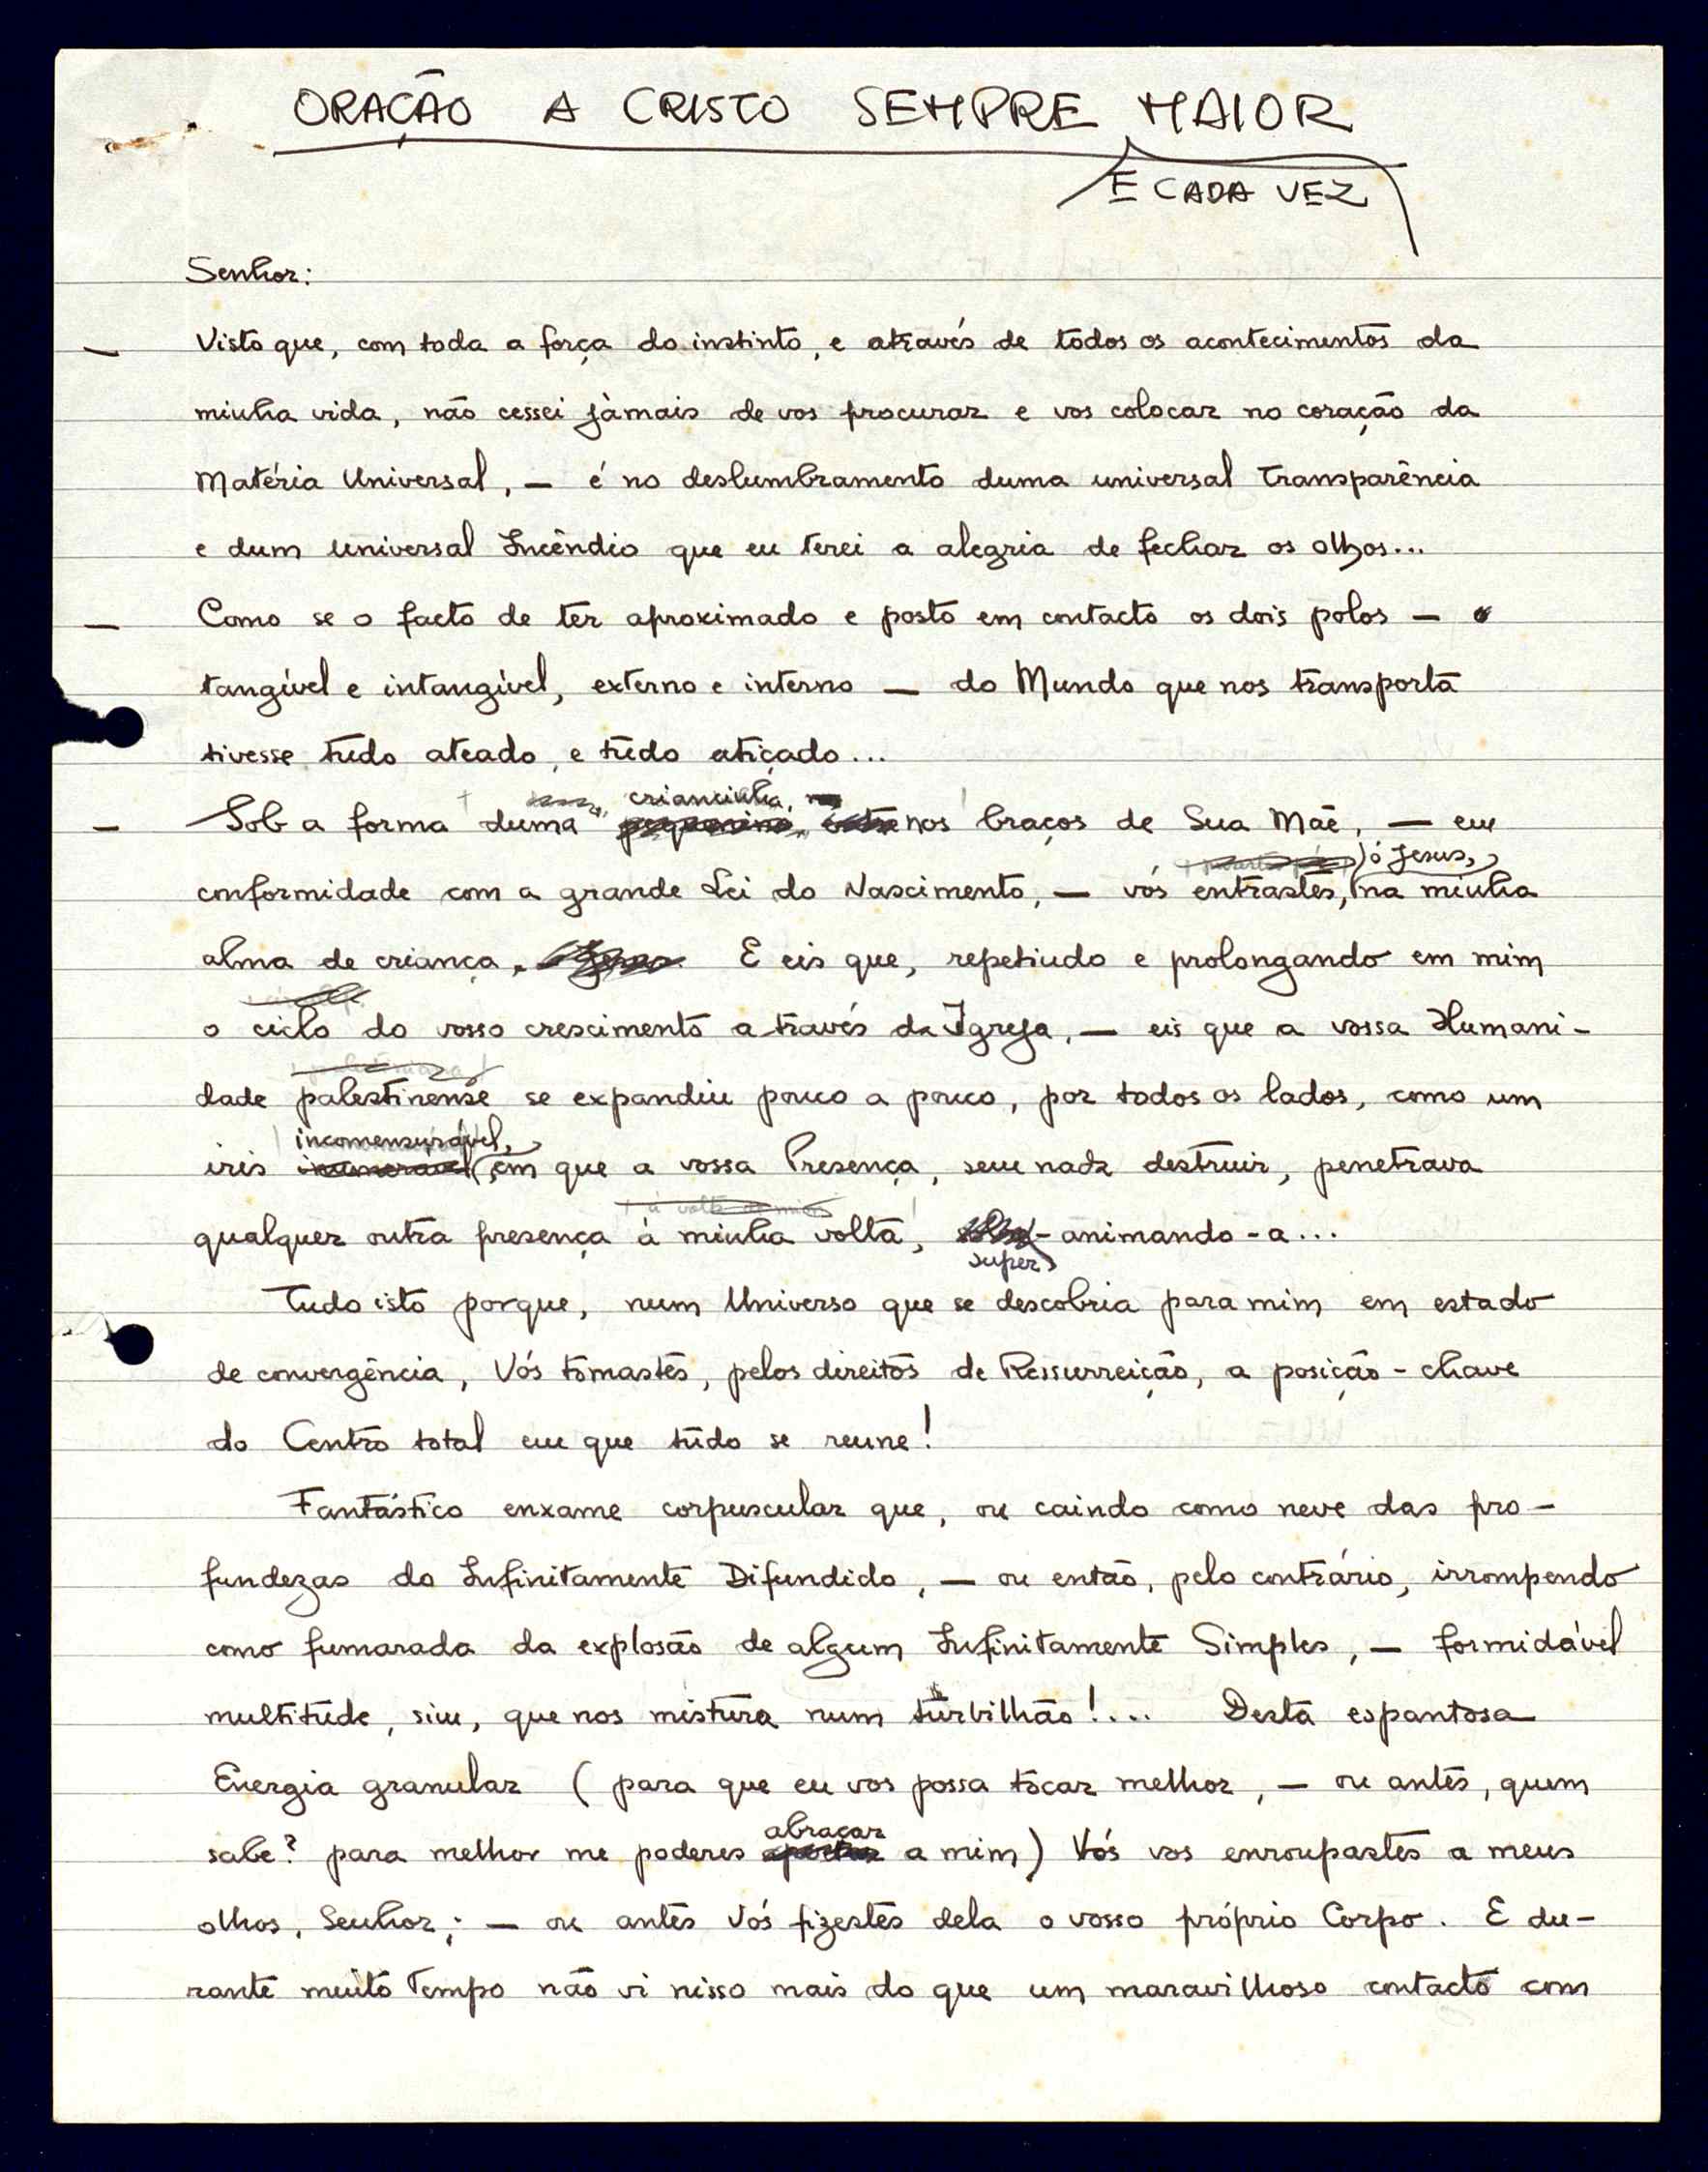 ORAÇÃO A CRISTO SEMPRE MAIOR
E CADA VEZ
Senhor:
— Visto que, com toda a força do instinto, e através de todos os acontecimentos da
minha vida, não cessei jàmais de vos procurar e vos colocar no coração da
Matéria Universal, — é no deslumbramento duma universal Transparência
e dum universal Incêndio que eu terei a alegria de fechar os olhos...
— Como se o facto de ter aproximado e posto em contacto os dois polos —
tangível e intangível, externo e interno — do Mundo que nos transporta
tivesse tudo ateado, e tudo atiçado...
criancinha,
— Sob a forma duma nos braços de Sua Mãe, — em
ó Jesus,
conformidade com a grande Lei do Nascimento, — vós entrastes, na minha
alma de criança. E eis que, repetindo e prolongando em mim
o ciclo do vosso crescimento através da Igreja, — eis que a vossa Humani-
dade palestinense se expandiu pouco a pouco, por todos os lados, como um
incomensurável,
iris em que a vossa Presença, sem nada destruir, penetrava
à volta de mim
qualquer outra presença à minha volta, -animando-a...
super
Tudo isto porque, num Universo que se descobria para mim em estado
de convergência, Vós tomastes, pelos direitos de Ressurreição, a posição-chave
do Centro total em que tudo se reune!
Fantástico enxame corpuscular que, ou caindo como neve das pro-
fundezas do Infinitamente Difundido, — ou então, pelo contrário, irrompendo
como fumarada da explosão de algum Infinitamente Simples, — formidável
multitude, sim, que nos mistura num turbilhão!... Desta espantosa
Energia granular (para que eu vos possa tocar melhor, — ou antes, quem
abraçar
sabe? para melhor me poderes a mim) Vós vos enroupastes a meus
olhos, Senhor; — ou antes Vós fizestes dela o vosso próprio Corpo. E du-
rante muito Tempo não vi nisso mais do que um maravilhoso contacto com